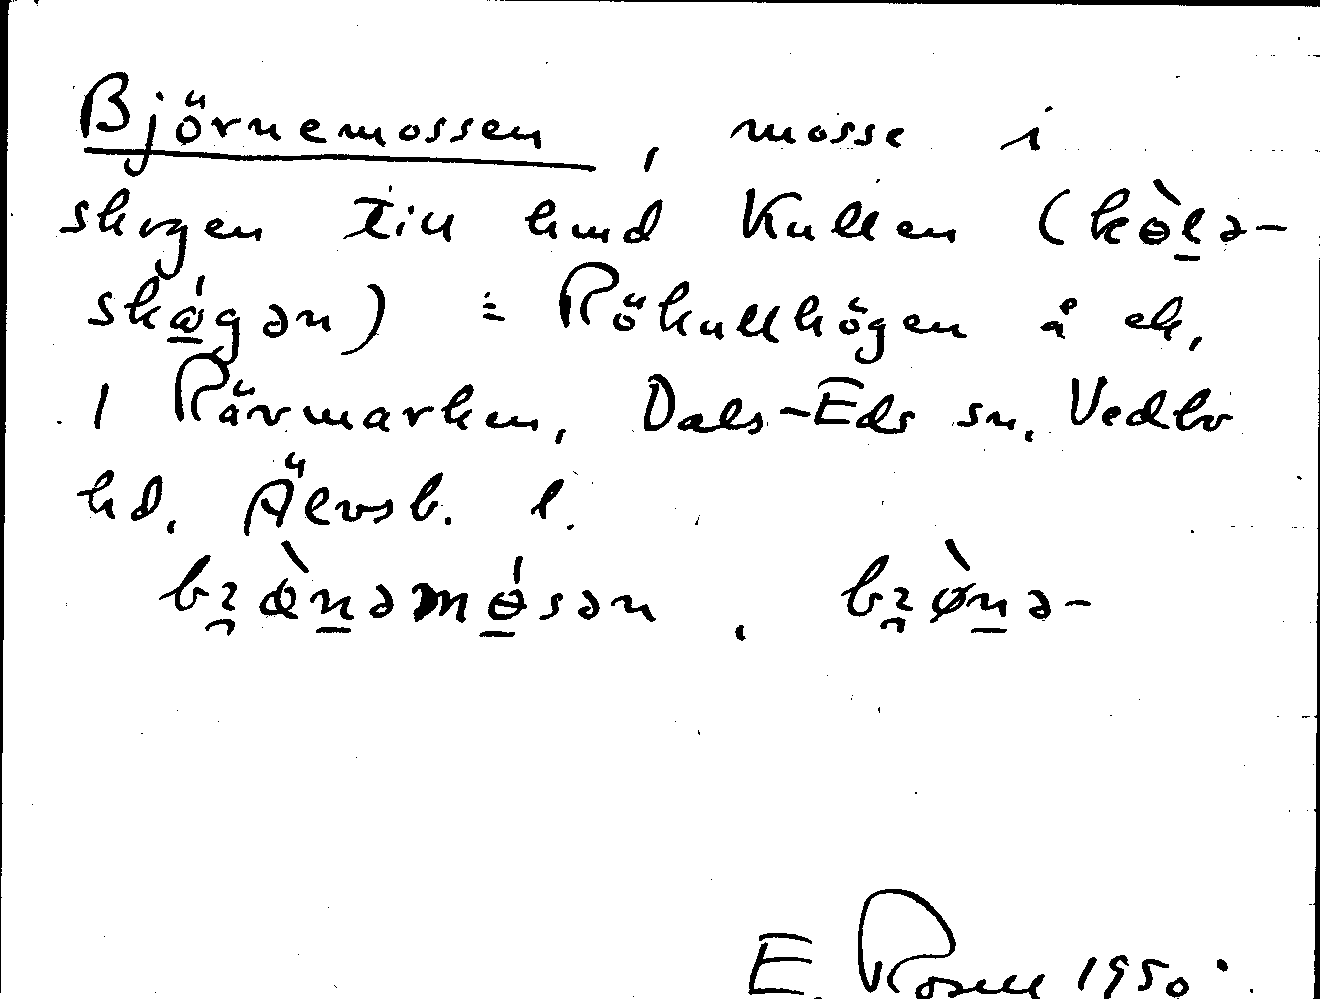 Björnemossen, mosse i
skogen till hmd Kullen (kɵ̀lə-
skɷ́gən) = Rökullhögen å ek.
1 Rävmarken, Dals-Eds sn, Vedbo
hd. Älvsb. l.
bɀæ̀nəmɵ́sən, bɀø̀nə-
E. Rosell 1950.